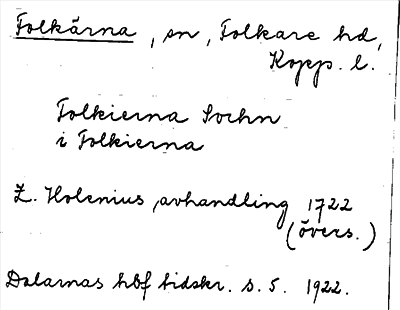 Folkärna, sn, Folkare hd,
Kopp. l.
Folkierna Sochn
i Folkierna
Z. Holenius, avhandling 1722
(övers.)
Dalarnas hbf tidskr. s. 5. 1922.